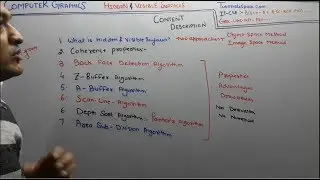 COMPUTER GRAPHICS
HIDDEN & VISIBLE SURFACES
CONTENT
DESCRIPTION
1 What is Hidden & Visible Surfaces? → Two approaches
Object Space Method
Image Space Method
2 Coherent properties
3 Back Face Detection Algorithm
4 Z-Buffer Algorithm
5 A-Buffer Algorithm
6 Scan Line-Algorithm
6 Depth Sort Algorithm - Painter's algorithm
7 Area Sub-Division Algorithm
Properties
Advantages
No Derivation
No Numerical